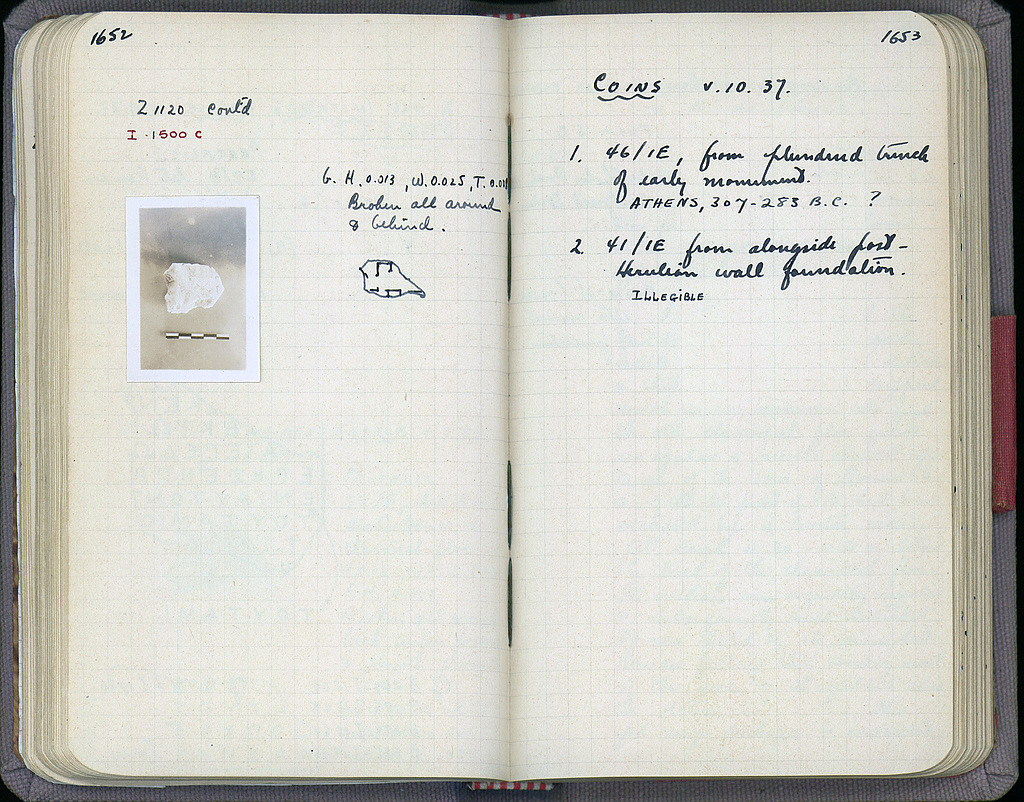 1652
Σ 1120 cont'd
I · 1500 C
G. H. 0.013, W. 0.025, T.
Broken all around
& behind.
1653
COINS V. 10. 37.
1. 46/ΙΕ, from plundered trench
of early monument.
ATHENS, 307-283 B.C. ?
2. 41/ΙΕ from alongside post-
Herulian wall foundation.
ILLEGIBLE